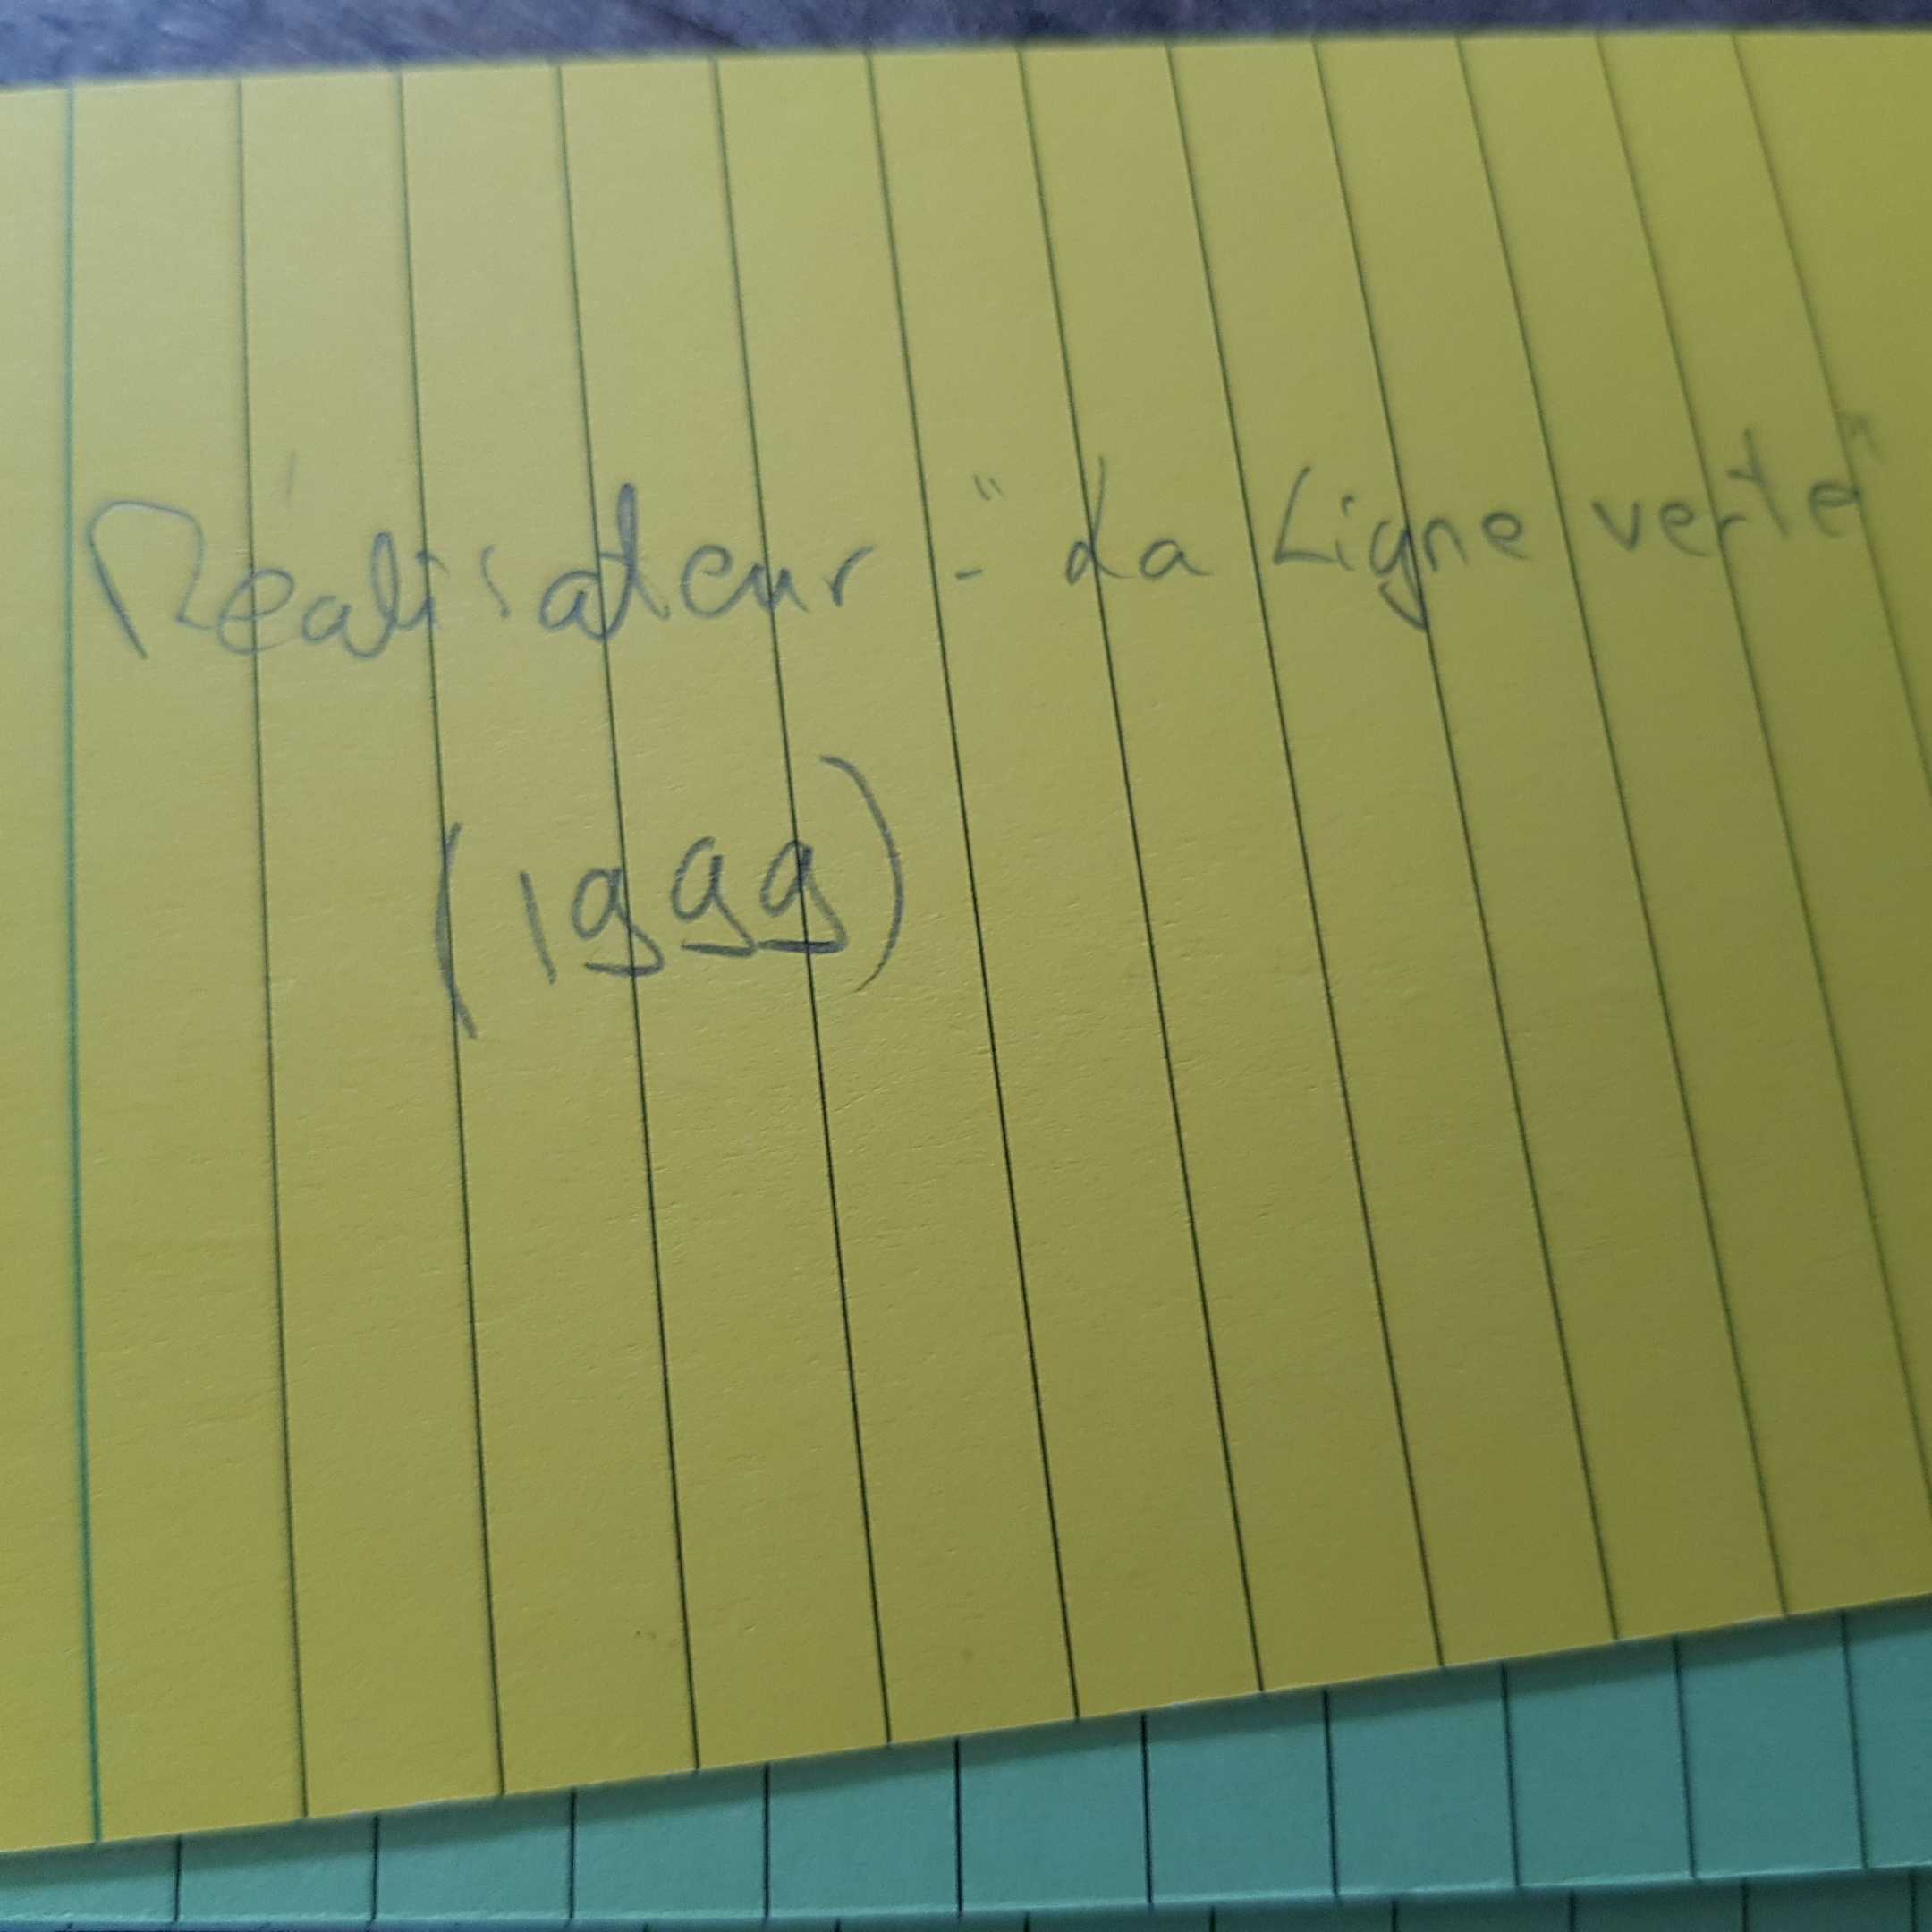 Réalisateur - "La Ligne verte"
(1999)